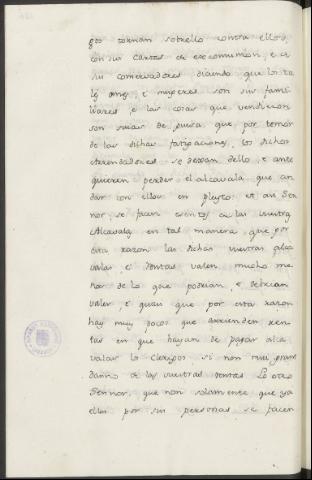 go tornan sobrello contra ellos,
con sus cartas de excomunion, e de
su conservadores diciendo que los ta
les omes, e mugeres son sus fami
liares, e las cosas que vendieron
son suias de guisa que por temor
de las dichas fatigaciones, los dichos
Arrendadores se dexan dello, e ante
quieren perder el alcavala que an
dar con ellos en pleyto. et asi Se
ñor, se facen esentos a las vuestras
Alcavalas en tal manera, que por
esta razon las dichas vuestras alca
valas, e Rentas valen mucho me
nos de lo que podrian, e debrian
valer, e quasi que por esta razon
hay muy pocos que arrienden ren
tas en que hayan de pagar alca
valas los Clerigos, si non mui grand
danno de las vuestras rentas. Lo otro
Sennor, que non solamente que ya
ellos por sus personas se facen